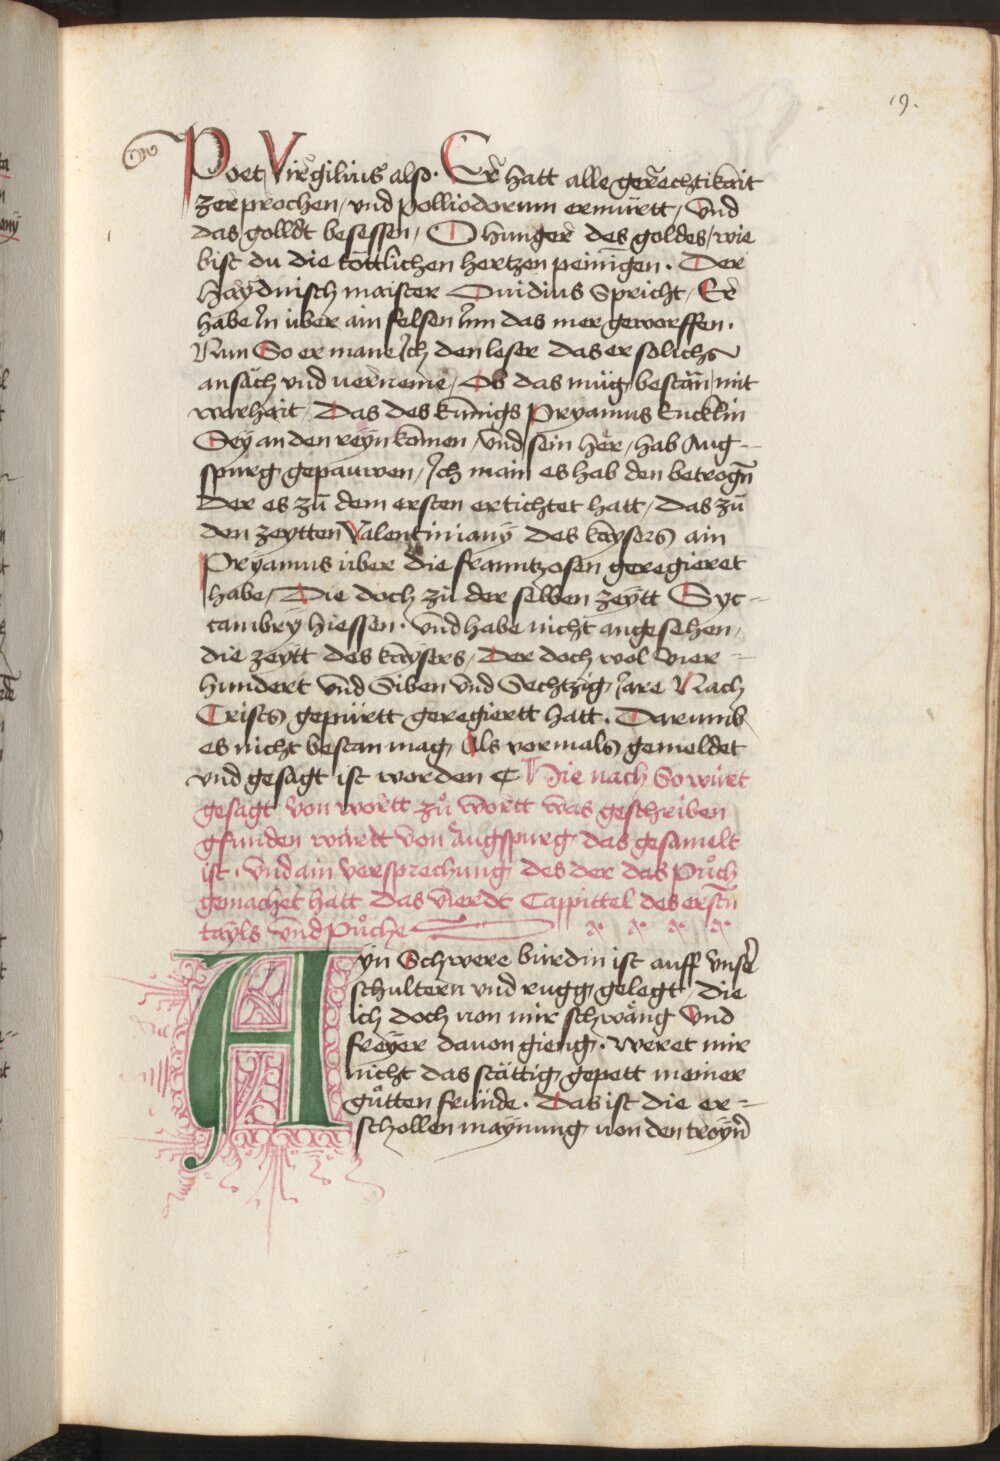 19.
Poet Virgilius also. Er hatt alle gerechtikait
zerprochen / vnd polliodorum ermürtt / Vnd
das golldt besessen / O hunger des goldes / wie
bist du die töttlichen hertzen peinigen. Der
haydnisch maister Ouidius Spricht / Er
habe In über ain felsen Inn das mer geworffen.
Nun So ermane Ich den leser das er solichs
ansäch vnd uerneme / Ob das müg bestan / mit
warhait / Das des künigs Pryamus Enncklin
Sey an den reyn komen / Vnd sein her / hab Aug-
spurg gepauwen / Ich main es hab den betrogñ
der es zů dem ersten ertichtet hatt / das zů
den zeytten Valentiniany des kaysers ain
Pryamus über die franntzosen geregieret
habe / Die doch zů der selben zeytt Syc-
cambry hiessen. Vnd habe nicht angesehen /
die zeytt des kaysers / Der doch wol vier-
hundert Vnd Siben Vnd Sechtzig Iare Nach
Crists gepürtt geregiertt hatt. Darumb
es nicht bestan mag / Als vormals gemeldet
vnd gesagt ist worden ¶ Hie nach So würt
gesagt von wortt zů wortt was geschriben
gfunden wardt von Augspurg das gesamelt
ist. Vnd ain versprechung des der das Půch
gemachet hatt das vierdt Cappittel des erstñ
tayls Vnd Půche
AYn Schwere bürdin ist auff vnser
schultern vnd rugg gelegt / die
ich doch von mir schwäng Vnd
freyer dauon gieng. Weret mir
nicht das stättig gepett meiner
gůtten fründe. Das ist die er-
schollen maynung uon den troyñ